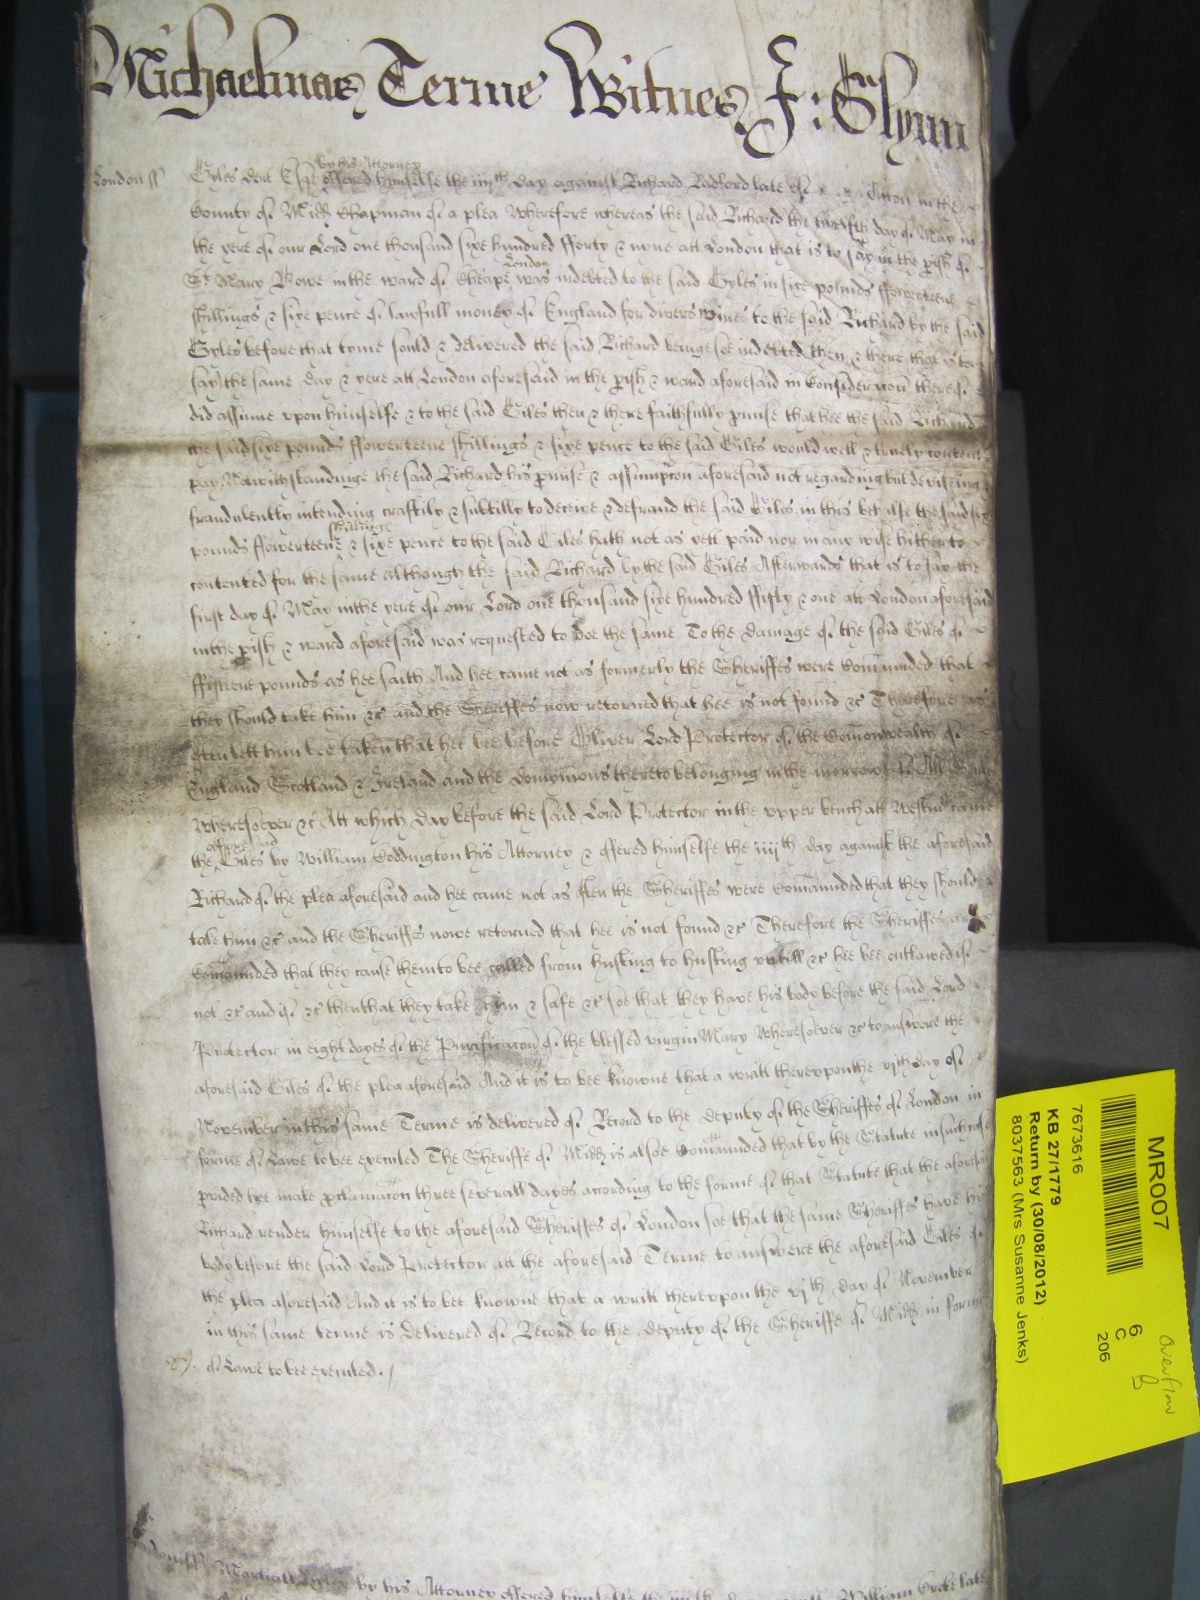 Michaelmas Terme Witnes J: Glynn
London ss Gyles Dent Esqr by his Attorney offered himselfe the iiijth day against Richard Radford late of in the
County of Midd Chapman of a plea Wherefore whereas the said Richard the twelfth day of May in
the yere of our Lord one thousand sixe hundred fforty & nyne att London that is to say in the pish of
St Mary Bowe in the ward of Cheape London was indebted to the said Gyles in sixe pounds ffowerteene
shillings & sixe pence of lawfull money of England for divers wines to the said Richard by the said
Gyles before that tyme sould & delivered the said Richard beinge soe indebted then & there that is to
say the same day & yere att London aforesaid in the pish & ward aforesaid in Consideracon thereof
did assume vpon himselfe & to the said Giles then & there faithfully pmise that hee the said Richard
the said sixe pounds ffowerteene shillings & sixe pence to the said Giles would well & truely content &
pay Notwithstandinge the said Richard his pmise & assumpcon aforesaid not regarding but devising &
fraudulently intending craftily & subtilly to deceive & defraud the said Giles in this behalfe the said sixe
pounds ffowerteene shillings & sixe pence to the said Giles hath not as yett paid nor in any wise hitherto
contented for the same although the said Richard by the said Giles Afterwards that is to say the
first day of May in the yere of our Lord one thousand sixe hundred ffifty & one att London aforesaid
in the pish & ward aforesaid was requested to doe the same To the damage of the said Giles of
ffifteene pounds as hee saith And hee came not as formerly the Sheriffes were Comaunded that
they should take him &c and the Sheriffes now retorned that hee is not found &c Therefore as
often lett him bee taken that hee bee before Oliver Lord Protector of the Comonwealth of
England Scotland & Ireland and the Dominions thereto belonging in the morrow of All
Wheresoever &c Att which day before the said Lord Protector in the vpper bench att Westm came
the aforesaid Giles by William Coddington his Attorney & offered himselfe the iiijth day against the aforesaid
Richard of the plea aforesaid and hee came not as often the Sheriffes were Comaunded that they should
take him &c and the Sheriffes nowe retorned that hee is not found &c Therefore the Sheriffes are
Comaunded that they cause him to bee called from husting to husting vntill &c hee bee outlawed if
not &c and if &c then that they take him & safe &c soe that they have his body before the said Lord
Protector in eight dayes of the Purificacon of the blessed virgin Mary Wheresoever &c to answere the
aforesaid Giles of the plea aforesaid And it is to bee knowne that a writt therevpon the vjth day of
November in this same Terme is delivered of Record to the deputy of the Sheriffes of London in
forme of Lawe to bee executed The Sheriffe of Midd is alsoe Comaunded that by the Statute in such case
pvided hee make pclamacon three severall dayes according to the forme of that Statute that the aforesaid
Richard render himselfe to the aforesaid Sheriffes of London soe that the same Sheriffes have his
body before the said Lord Protector att the aforesaid Terme to answere the aforesaid Giles of
the plea aforesaid And it is to bee knowne that a writt therevpon the vjth day of November
in this same terme is delivered of Record to the deputy of the Sheriffe of Midd in forme
of Lawe to bee executed.
London ss by his Attorney offered himselfe the iiijth William late
MR007
6
C
206
7673616
KB 27/1779
Return by (30/08/2012)
8037563 (Mrs Susanne Jenks)
Overflow
B